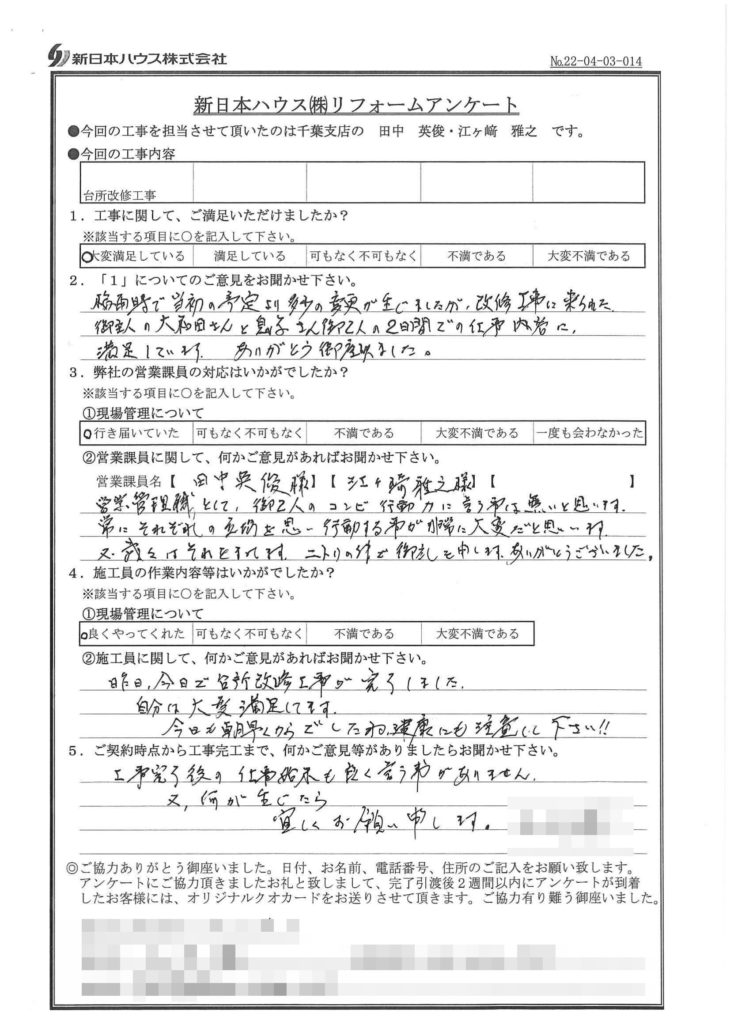 新日本ハウス株式会社
No.22-04-03-014
新日本ハウス㈱リフォームアンケート
●今回の工事を担当させて頂いたのは千葉支店の 田中 英俊・江ヶ﨑 雅之 です。
●今回の工事内容
台所改修工事
1．工事に関して、ご満足いただけましたか？
※該当する項目に○を記入して下さい。
大変満足している 満足している 可もなく不可もなく 不満である 大変不満である
2．「1」についてのご意見をお聞かせ下さい。
時で当初の予定より多少の変更が生じましたが、改修工事に来られた
御主人の大和田さんと息子さん御2人の2日間での仕事内容に、
満足しています。 ありがとう御座いました。
3．弊社の営業課員の対応はいかがでしたか？
※該当する項目に○を記入して下さい。
①現場管理について
○行き届いていた 可もなく不可もなく 不満である 大変不満である 一度も会わなかった
②営業課員に関して、何かご意見があればお聞かせ下さい。
営業課員名【 田中英俊様 】【 江ヶ﨑雅之様 】【 】
営業管理職として、御2人のコンビ行動力に言う事は無いと思います。
常にそれぞれの立場を思い行動する事が非常に大変だと思います
又、ニトリの件で御礼を申します。ありがとうございました。
4．施工員の作業内容等はいかがでしたか？
※該当する項目に○を記入して下さい。
①現場管理について
○良くやってくれた 可もなく不可もなく 不満である 大変不満である
②施工員に関して、何かご意見があればお聞かせ下さい。
昨日、今日で台所改修工事が完了しました。
自分は大変満足してます。
今日も朝早くからでしたね。健康にも注意して下さい!!
5．ご契約時点から工事完工まで、何かご意見等がありましたらお聞かせ下さい。
工事完了後の仕事始末も良く言う事がありません。
又、何か生じたら
宜しくお願い申します。
◎ご協力ありがとう御座いました。日付、お名前、電話番号、住所のご記入をお願い致します。
アンケートにご協力頂きましたお礼と致しまして、完了引渡後2週間以内にアンケートが到着
したお客様には、オリジナルクオカードをお送りさせて頂きます。ご協力有り難う御座いました。